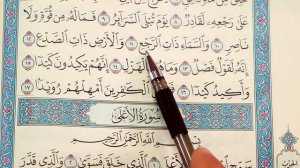 عَلَىٰ رَجْعِهِۦ لَقَادِرٌ ٨ يَوْمَ تُبْلَى ٱلسَّرَآئِرُ ٩ فَمَا لَهُۥ مِن قُوَّةٍ وَلَا
نَاصِرٍ ١٠ وَٱلسَّمَآءِ ذَاتِ ٱلرَّجْعِ ١١ وَٱلْأَرْضِ ذَاتِ ٱلصَّدْعِ ١٢
إِنَّهُۥ لَقَوْلٌ فَصْلٌ ١٣ وَمَا هُوَ بِٱلْهَزْلِ ١٤ إِنَّهُمْ يَكِيدُونَ كَيْدًا ١٥
وَأَكِيدُ كَيْدًا ١٦ ٱلْكَٰفِرِينَ أَمْهِلْهُمْ رُوَيْدًۢا ١٧
سُورَةُ الأَعْلَىٰ
بِسْمِ ٱللَّهِ ٱلرَّحْمَٰنِ ٱلرَّحِيمِ
سَبِّحِ ٱسْمَ ٱلْأَعْلَى ١ ٱلَّذِى خَلَقَ فَسَوَّىٰ ٢ وَٱلَّذِى قَدَّرَ